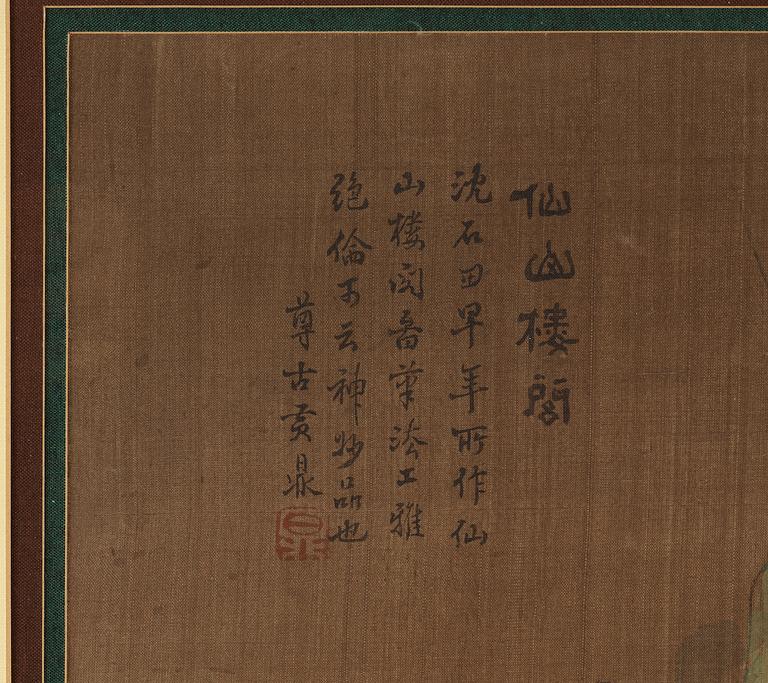 仙山樓閣
沈石田早年所作仙
山樓閣畨筆法工雅
絕倫可云神妙品也
尊古黃鼎
鼎